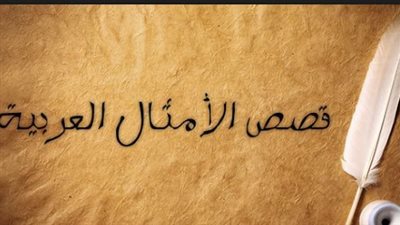 قصص الأمثال العربية